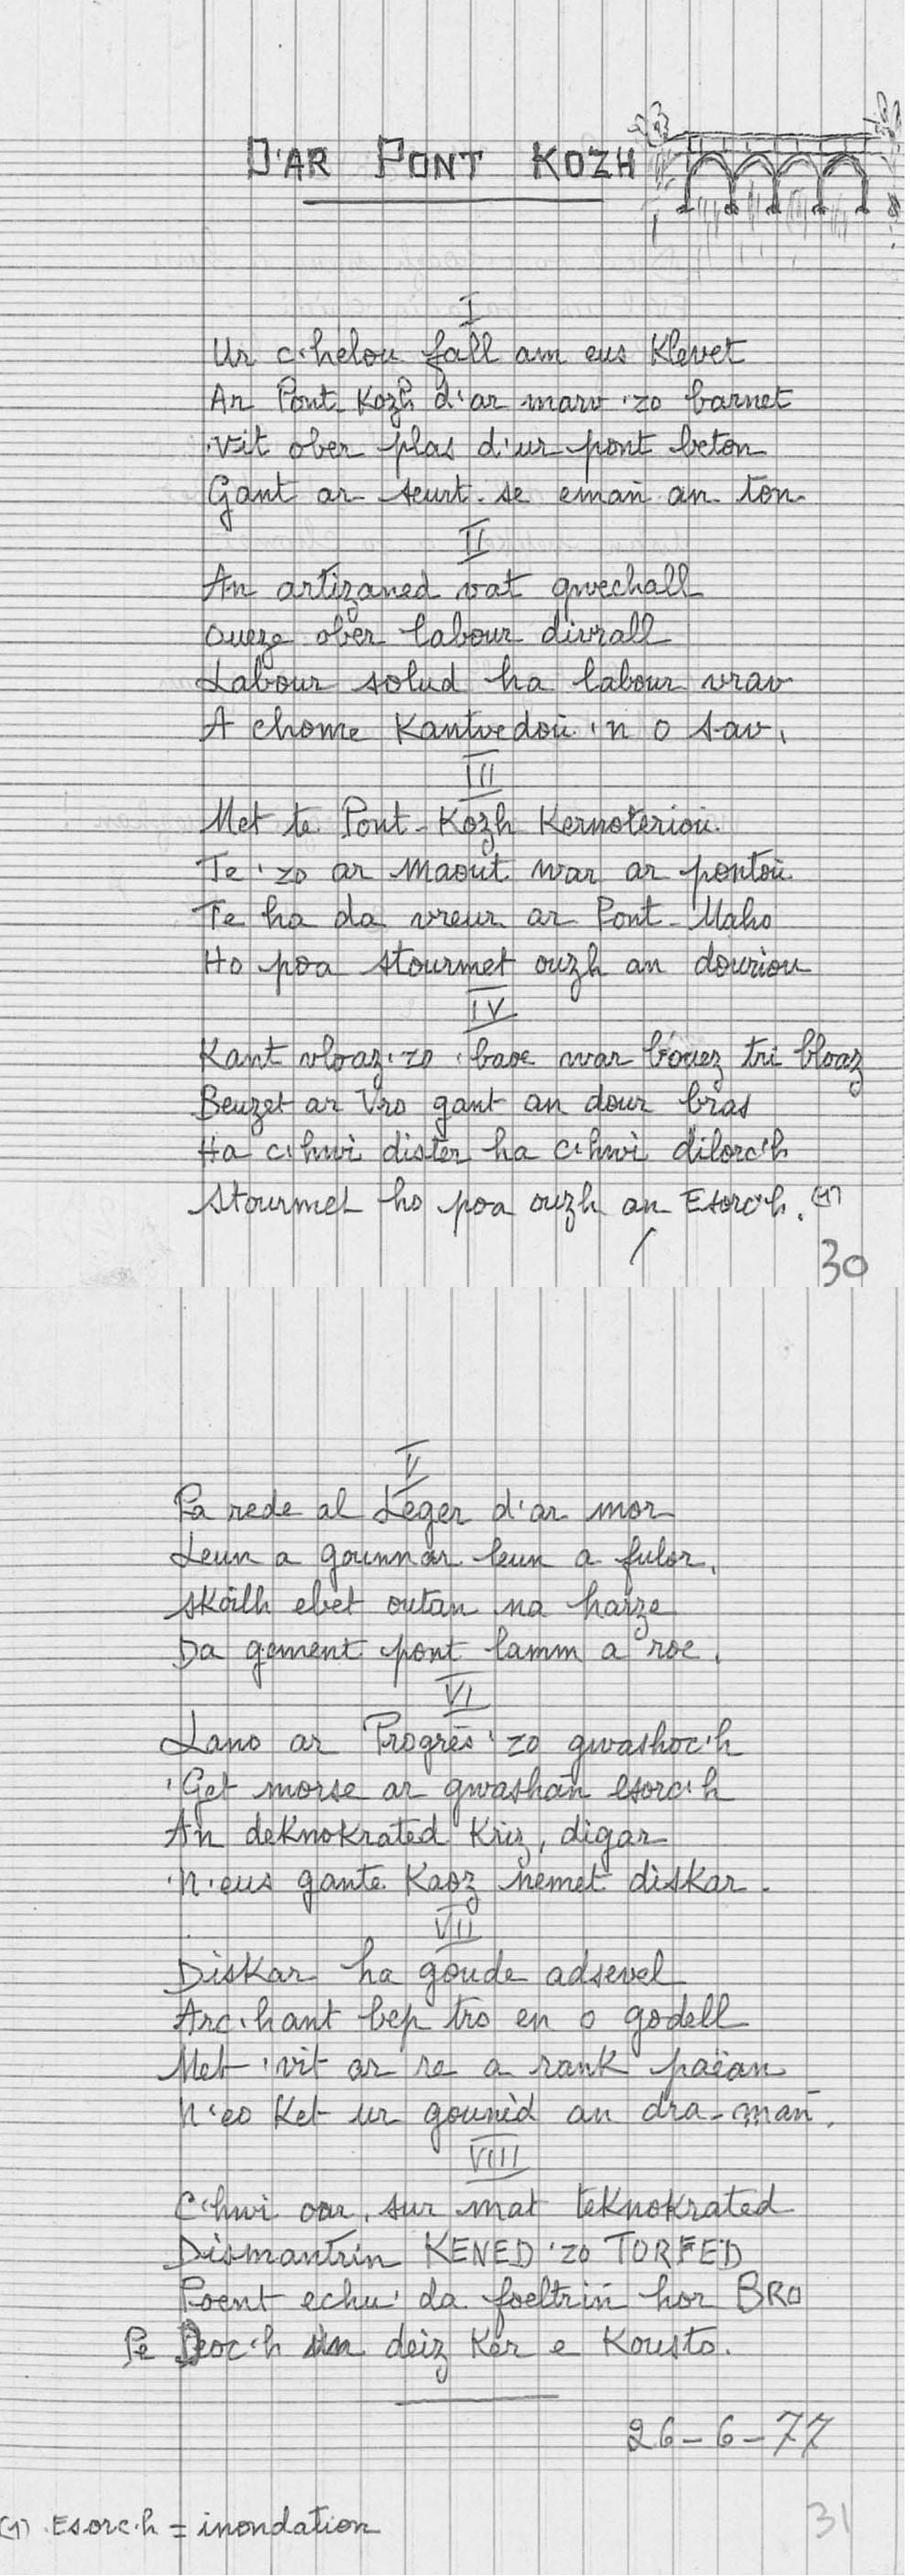 D'AR PONT KOZH
I
Ur c'helou fall am eus Klevet
Ar Pont Kozh d'ar marv 'zo barnet
'Vit ober plas d'ur pont beton
Gant ar seurt-se emañ an ton.
II
An artizaned vat gwechall
Oueze ober labour divrall
Labour solud ha labour vrav
A chome Kantvedoù 'n o sav.
III
Met te Pont-Kozh Kernoteriou.
Te 'zo ar Maout war ar pontoù
Te ha da vreur ar Pont-Maho
Ho poa stourmet ouzh an douriou
IV
Kant vloaz 'zo 'baoe war bouez tri bloaz
Beuzet ar Vro gant an dour bras
Ha c'hwi dister ha c'hwi dilorc'h
Stourmet ho poa ouzh an Esorc'h. (1)
/
30
V
Pa rede al Léger d'ar mor
Leun a gounnar leun a fulor.
Skoilh ebet outan na harze
Da gement pont lamm a roe.
VI
Lano ar Progrès 'zo gwashoc'h
'Get morse ar gwashañ esorc'h
An deknokrated Kriz, digar
'N'eus gante Kaoz nemet diskar.
VII
Diskar ha goude adsevel
Arc'hant bep tro en o godell
Met 'vit ar re a rank paëan
N'eo Ket ur gounid an dra-mañ.
VIII
C'hwi oar, sur mat teknokrated
Dismantrin KENED 'zo TORFED
Poent echu' da foeltriñ hor BRO
Pe Deoc'h un deiz Ker e Kousto.
26-6-77
(1) Esorc'h = inondation
31